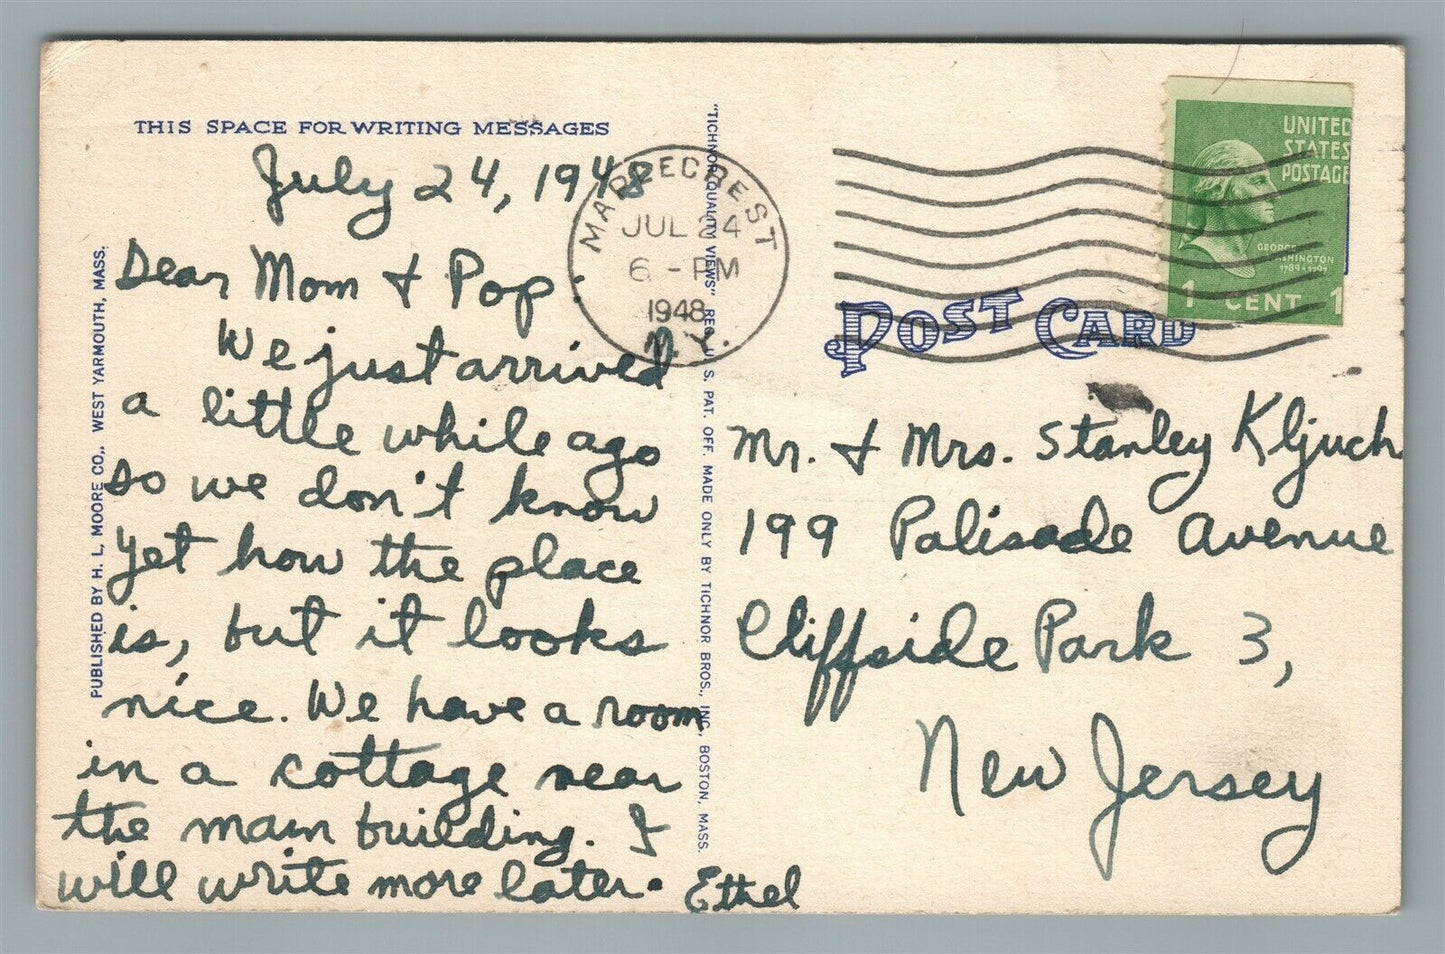 THIS SPACE FOR WRITING MESSAGES
July 24, 1948
Dear Mom + Pop:
We just arrived
a little while ago
so we don't know
yet how the place
is, but it looks
nice. We have a room
in a cottage near
the main building. I
will write more later. Ethel
PUBLISHED BY H. L. MOORE CO., WEST YARMOUTH, MASS.
"TICHNOR QUALITY VIEWS" REG. U. S. PAT. OFF. MADE ONLY BY TICHNOR BROS., INC., BOSTON, MASS.
MAPLECREST
JUL 24
6 - PM
1948
N.Y.
UNITED
STATES
POSTAGE
GEORGE
WASHINGTON
1789-1797
1 CENT 1
POST CARD
Mr. + Mrs. Stanley Kljuch
199 Palisade Avenue
Cliffside Park 3,
New Jersey